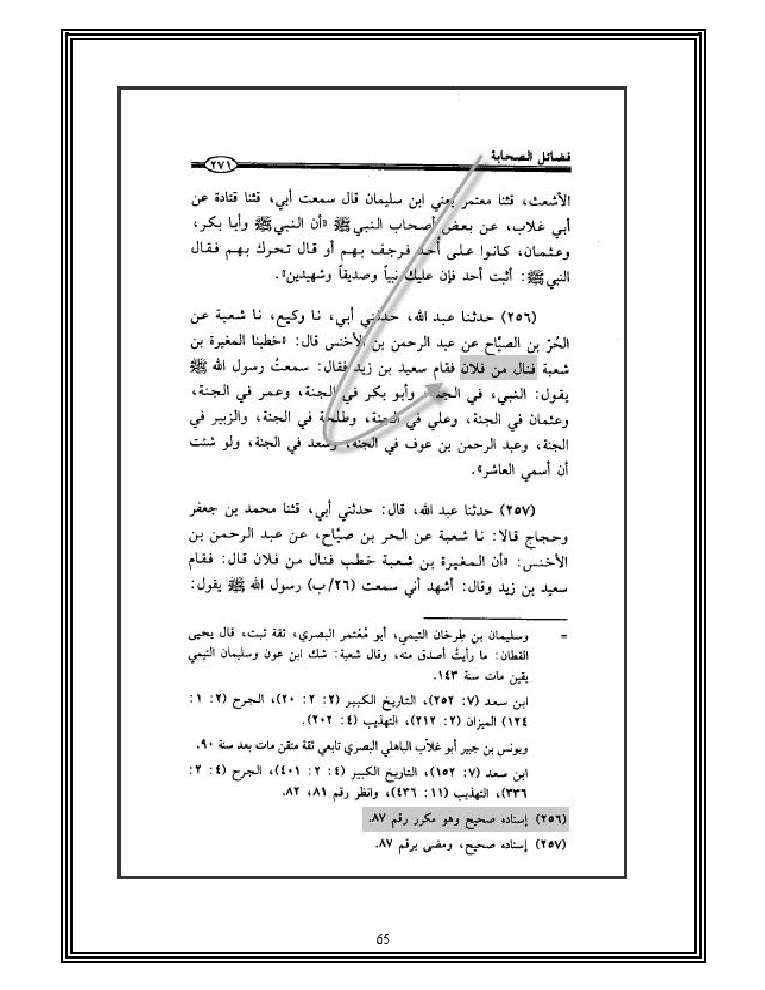 فضائل الصحابة
٢٧١
الأشعث، قثنا معتمر يعني ابن سليمان قال سمعت أبي، قثنا قتادة عن
أبي غلاب، عن بعض أصحاب النبي ﷺ «أن النبي ﷺ وأبا بكر،
وعثمان، كانوا على أُحد فرجف بهم أو قال تحرك بهم فقال
النبي ﷺ: أثبت أحد فإن عليك نبياً وصديقاً وشهيدين».
(٢٥٦) حدثنا عبد الله، حدثني أبي، نا وكيع، نا شعبة عن
الحُرّ بن الصيَّاح عن عبد الرحمن بن الأخنس قال: «خطبنا المغيرة بن
شعبة فنال من فلان فقام سعيد بن زيد فقال: سمعتُ رسول الله ﷺ
يقول: النبي، في الجنة، وأبو بكر في الجنة، وعمر في الجنة،
وعثمان في الجنة، وعلي في الجنة، وطلحة في الجنة، والزبير في
الجنة، وعبد الرحمن بن عوف في الجنة، وسعد في الجنة، ولو شئت
أن أسمي العاشر».
(٢٥٧) حدثنا عبد الله، قال: حدثني أبي، قثنا محمد بن جعفر
وحجاج قالا: نا شعبة عن الحر بن صيَّاح، عن عبد الرحمن بن
الأخنس: «أن المغيرة بن شعبة خطب فنال من فلان قال: فقام
سعيد بن زيد وقال: أشهد أني سمعت (٢٦/ب) رسول الله ﷺ يقول:
= وسليمان بن طِرخان التيمي، أبو مُعْتمر البصري، ثقة ثبت، قال يحيى
القطان: ما رأيتُ أصدق منه، وقال شعبة: شك ابن عون وسليمان التيمي
يقين مات سنة ١٤٣.
ابن سعد (٧: ٢٥٢)، التاريخ الكبير (٢: ٢: ٢٠)، الجرح (٢: ١:
١٢٤) الميزان (٢: ٢١٢)، التهذيب (٤: ٢٠٢).
ويونس بن جبير أبو غلاّب الباهلي البصري تابعي ثقة متقن مات بعد سنة ٩٠.
ابن سعد (٧: ١٥٢)، التاريخ الكبير (٤: ٢: ٤٠١)، الجرح (٤: ٢:
٢٣٦)، التهذيب (١١: ٤٣٦)، وانظر رقم ٨١، ٨٢.
(٢٥٦) إسناده صحيح وهو مكرر رقم ٨٧.
(٢٥٧) إسناده صحيح، ومضى برقم ٨٧.
65